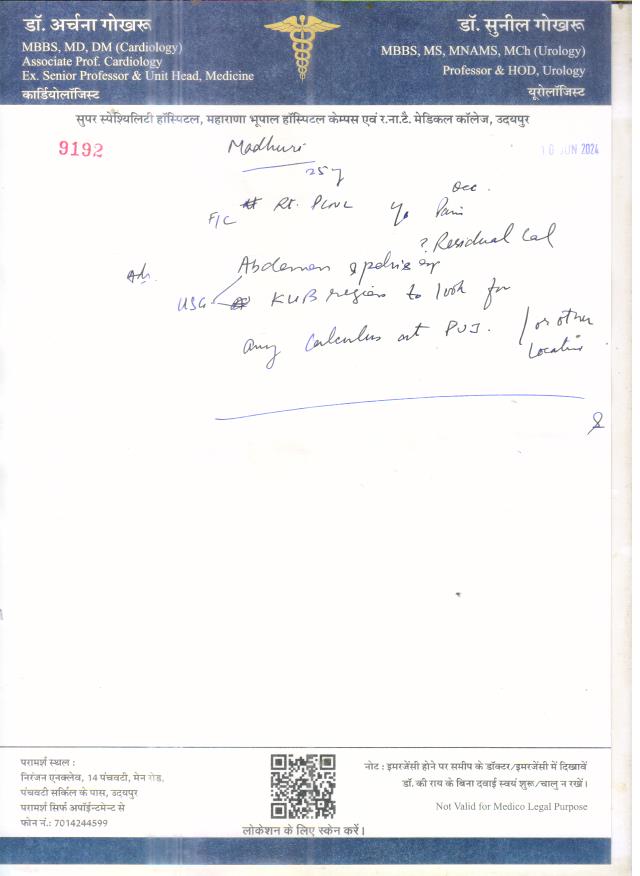 डॉ. अर्चना गोखरू
MBBS, MD, DM (Cardiology)
Associate Prof. Cardiology
Ex. Senior Professor & Unit Head, Medicine
कार्डियोलॉजिस्ट
डॉ. सुनील गोखरू
MBBS, MS, MNAMS, MCh (Urology)
Professor & HOD, Urology
यूरोलॉजिस्ट
सुपर स्पेश्यिलिटी हॉस्पिटल, महाराणा भूपाल हॉस्पिटल केम्पस एवं र.ना.टै. मेडिकल कॉलेज, उदयपुर
9192
JUN 2024
Madhuri
25 y
F/C Rt. PCNL occ. Pain
? Residual Cal
Adv.
Abdomen & pelvis
USG KUB region to look for
any Calculus at PUJ. / or other
Location
परामर्श स्थल :
निरंजन एनक्लेव, 14 पंचवटी, मेन रोड,
पंचवटी सर्किल के पास, उदयपुर
परामर्श सिर्फ अपॉईन्टमेन्ट से
फोन नं.: 7014244599
लोकेशन के लिए स्केन करें।
नोट : इमरजेंसी होने पर समीप के डॉक्टर/इमरजेंसी में दिखावें
डॉ. की राय के बिना दवाई स्वयं शुरू/चालु न रखें।
Not Valid for Medico Legal Purpose